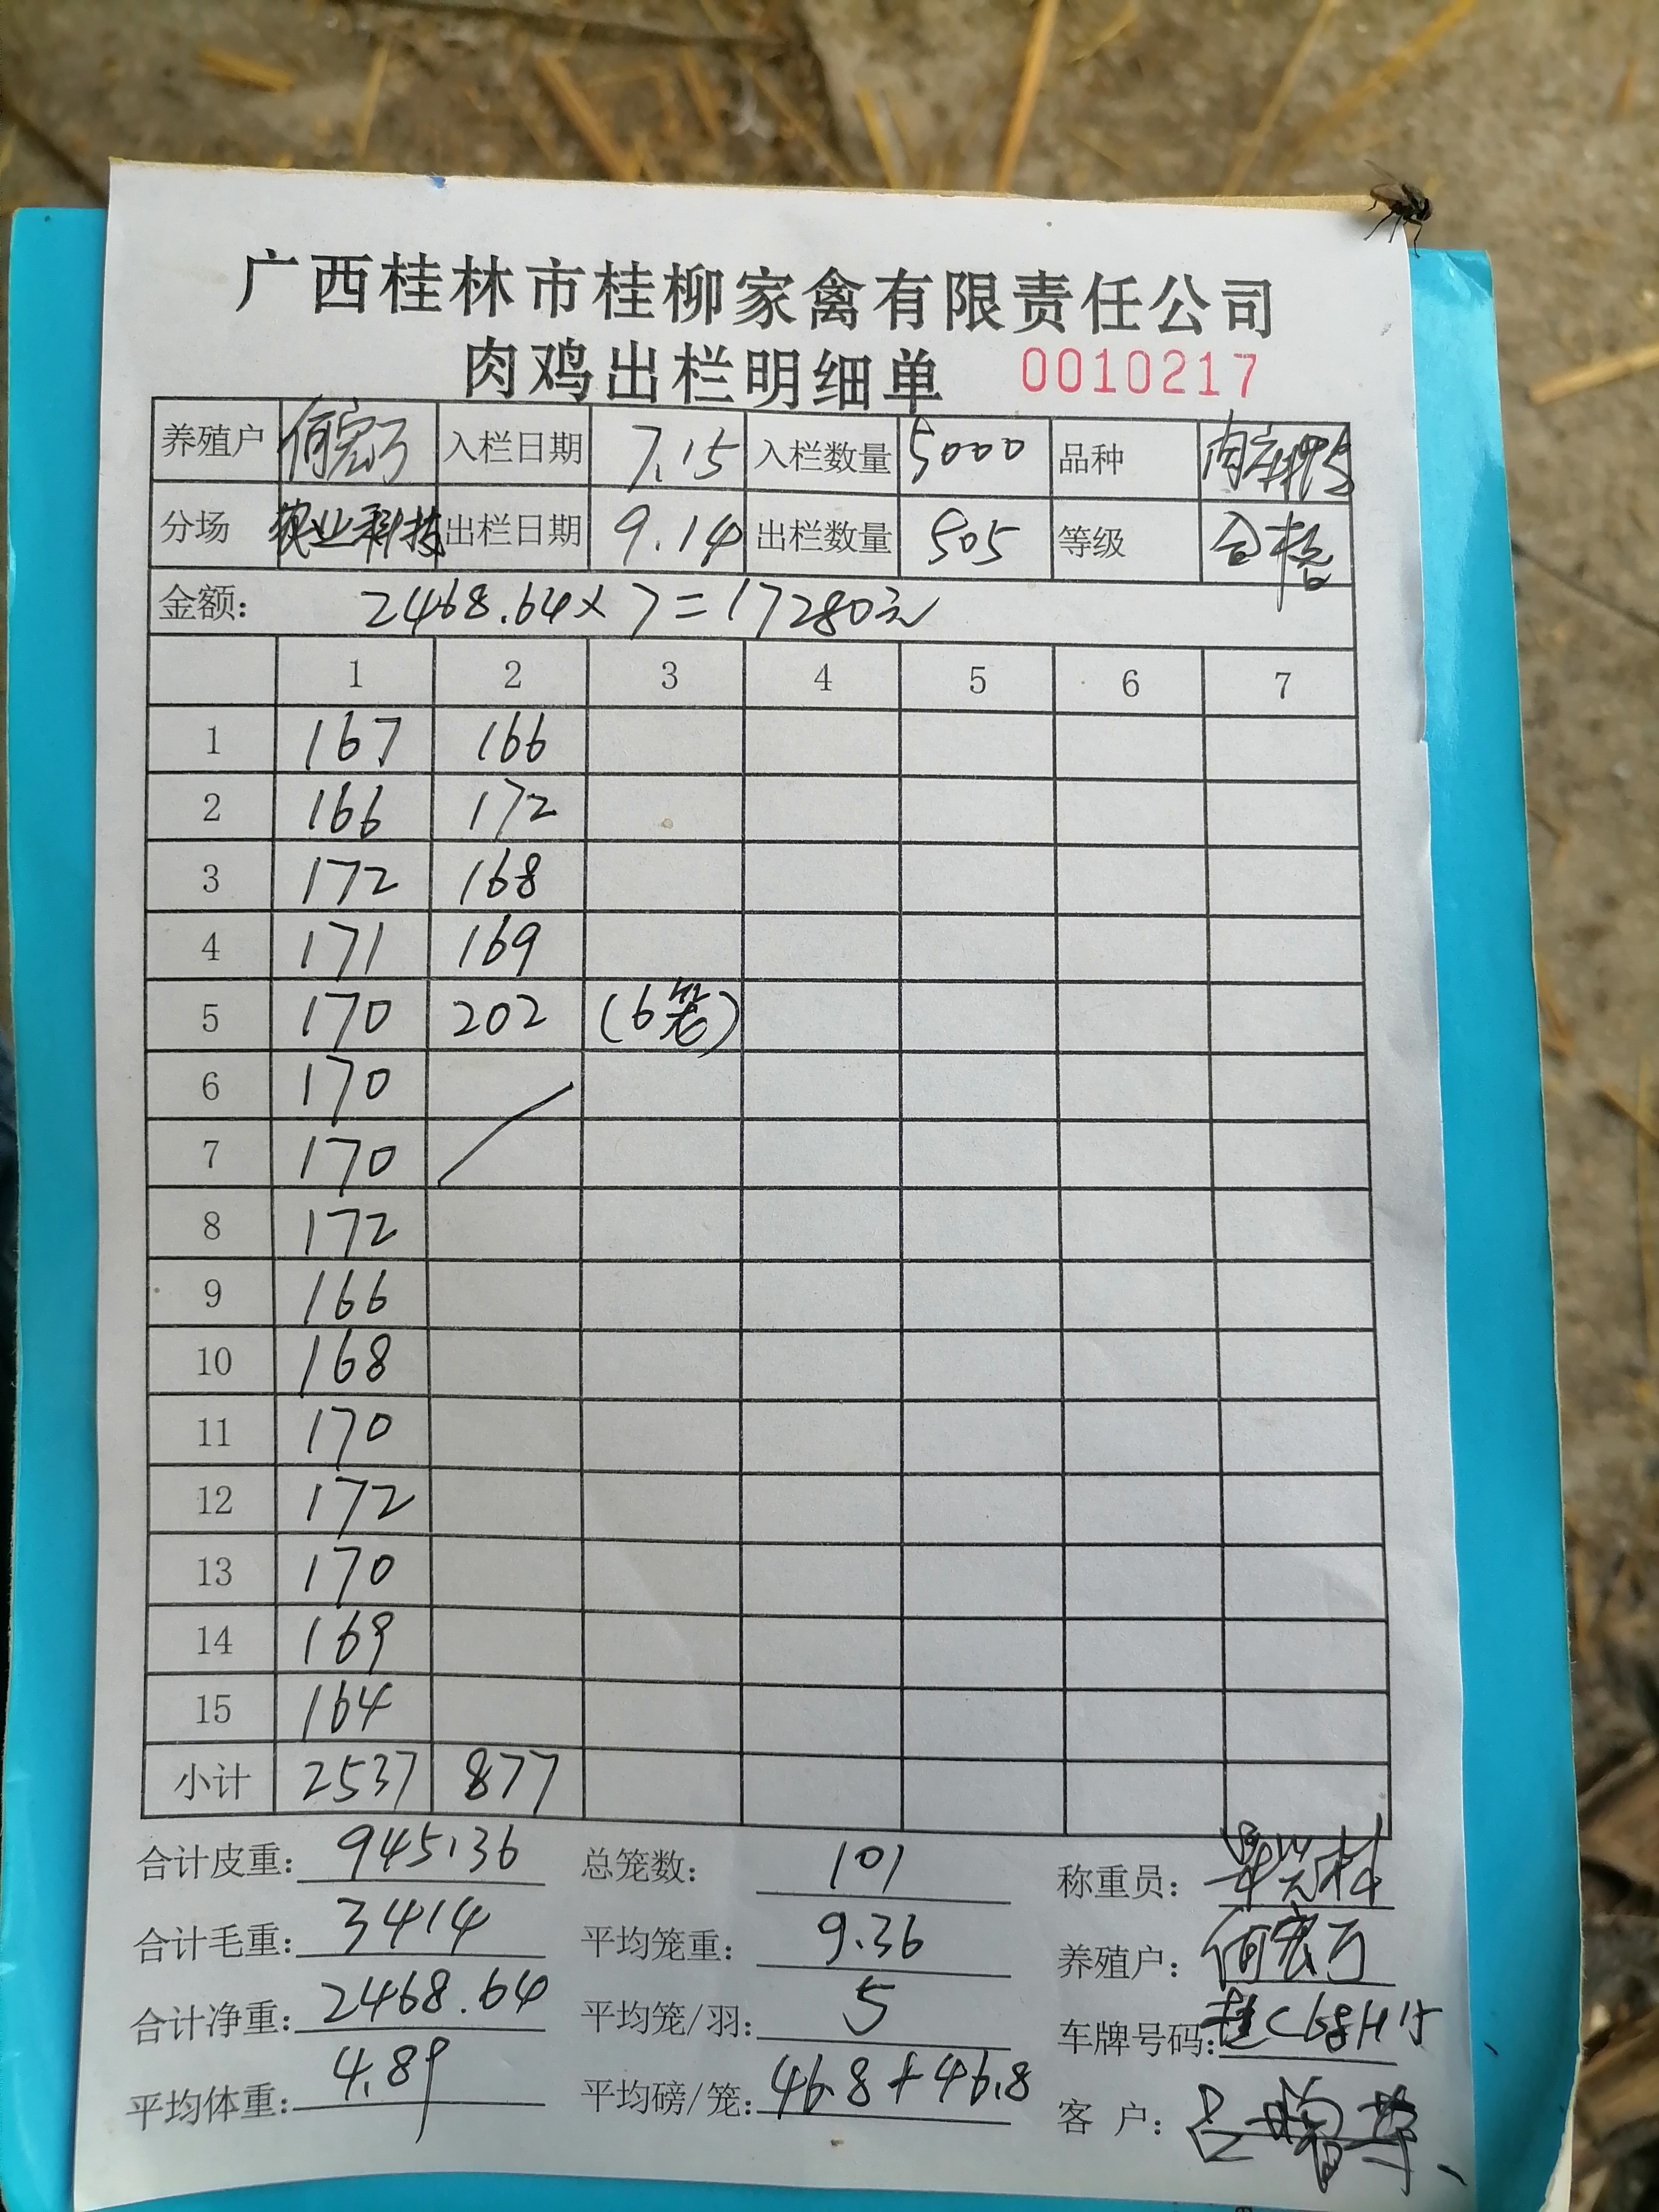 广西桂林市桂柳家禽有限责任公司
肉鸡出栏明细单 0010217
养殖户 何宏万 入栏日期 7.15 入栏数量 5000 品种
分场 农业科技 出栏日期 9.14 出栏数量 505 等级 合格
金额: 2468.64×7=17280元
1 2 3 4 5 6 7
1 167 166
2 166 172
3 172 168
4 171 169
5 170 202 (6笼)
6 170
7 170
8 172
9 166
10 168
11 170
12 172
13 170
14 169
15 164
小计 2537 877
合计皮重: 945.36 总笼数: 101 称重员:
合计毛重: 3414 平均笼重: 9.36 养殖户: 何宏万
合计净重: 2468.64 平均笼/羽: 5 车牌号码: 桂C68H15
平均体重: 4.89 平均磅/笼: 46.8+46.8 客户: